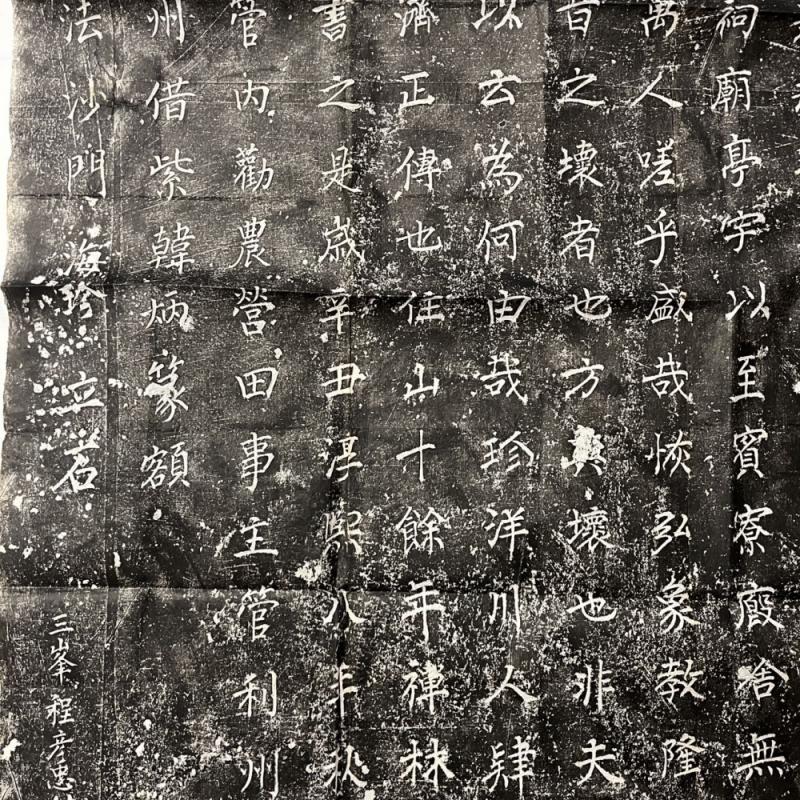 祠廟亭宇以至賓寮廄舍無
萬人嗟乎盛哉恢弘象教隆
百之壞者也方興壞也非夫
以云為何由哉珍洋川人肄
濟正傳也住山十餘年禪林
書之是歲辛丑淳熙八年秋
管內勸農營田事主管利州
州借紫韓炳篆額
法沙門海珍立石
三峯程彥忠